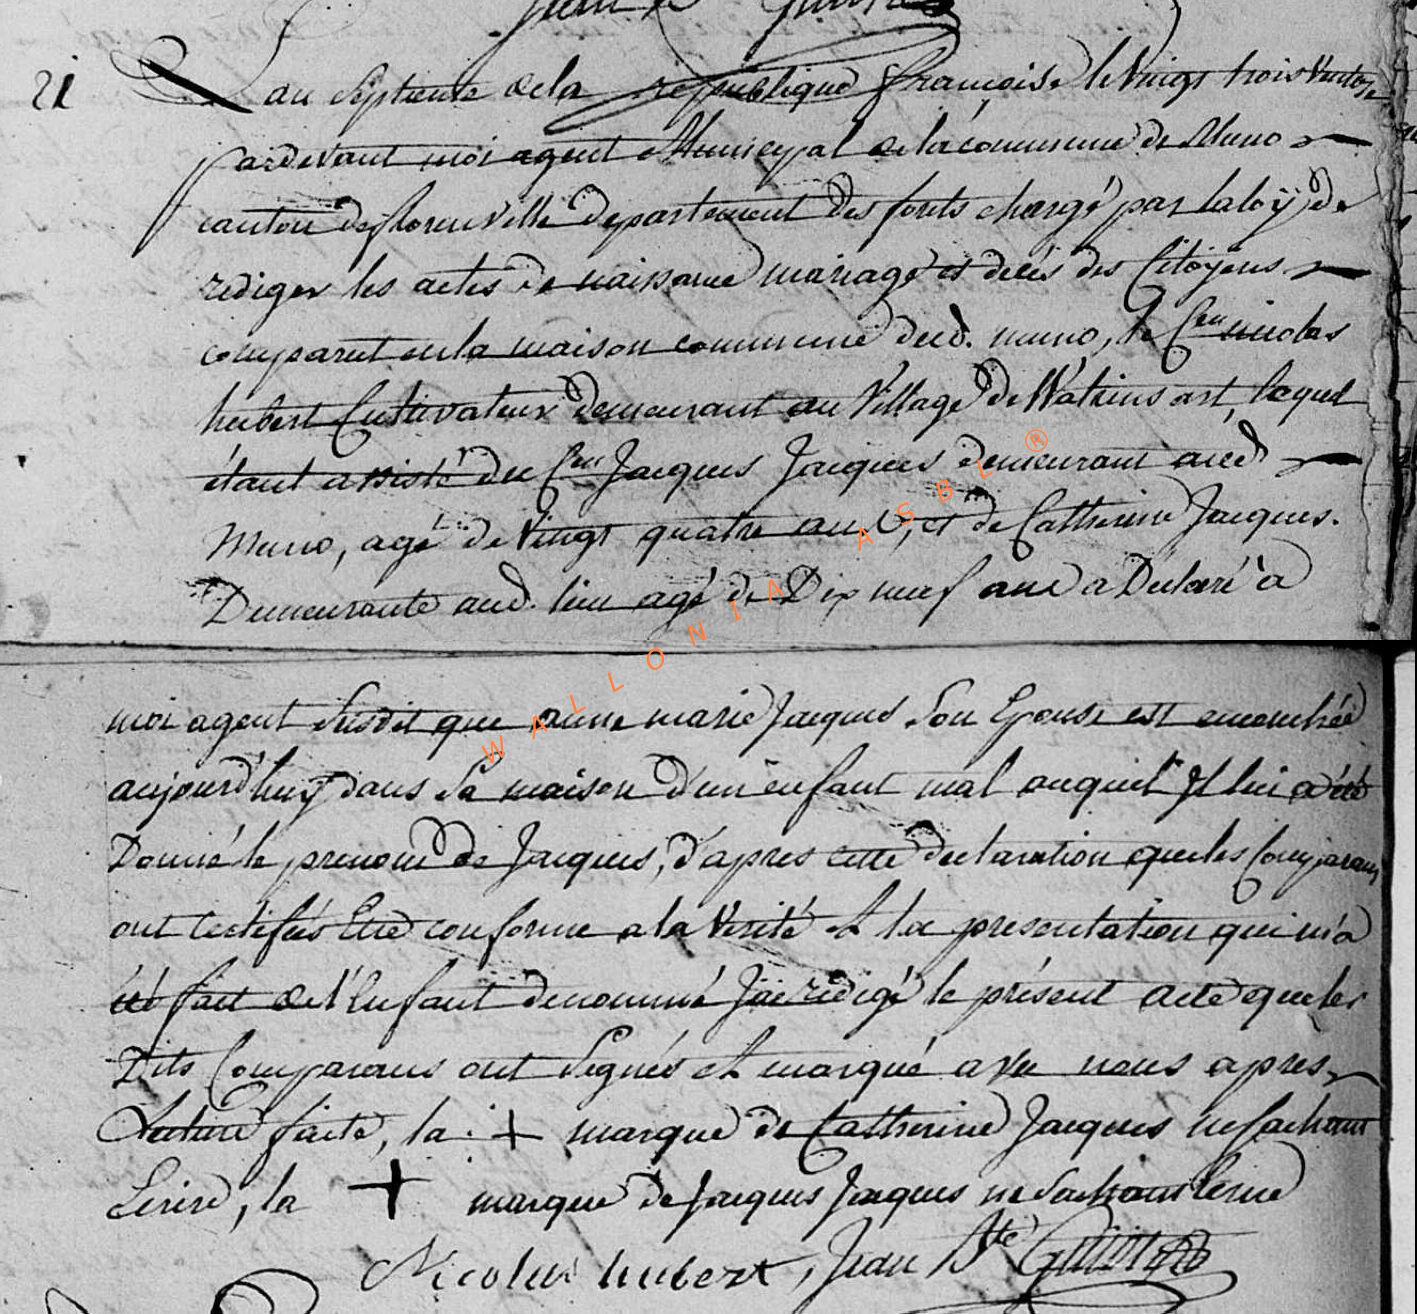 Jean B
21 L an Septieme de la republique françoise le Vingt trois Ventose
pardevant moi agent Municipal de la commune de Muno
canton de florenville departement des forêts chargé par la loÿ de
rediger les actes de naissance mariage et decès des Citoyens
comparut en la maison commune dud. muno, le Cen nicolas
hubert Cultivateur demeurant au Village de Watrinsart, lequel
étant assisté du Cen Jacques Jacques demeurant aud
Muno, agé de Vingt quatre ans, et de Catherine Jacques.
Demeurante aud. lieu agé de Dix neuf ans a Déclaré à
moi agent Susdit que anne marie Jacques Son Epouse est accouchée
aujourd'huÿ dans Sa maison d'un enfant mal auquel Il lui a été
Donné le prenom de Jacques, d'apres cette declaration que les Comparans
ont Certifiés Etre conforme a la Verité et la presentation qui m'a
été fait de l'Enfant denommé J'ai redigé le présent acte que les
Dits Comparans ont Signés et marqué avec nous apres
Lecture faite, la + marque de Catherine Jacques ne sachant
Ecrire, la + marque de Jacques Jacques ne Sachant Ecrire
Nicolas hubert, Jean Bte
WALLONIA ASBL ®